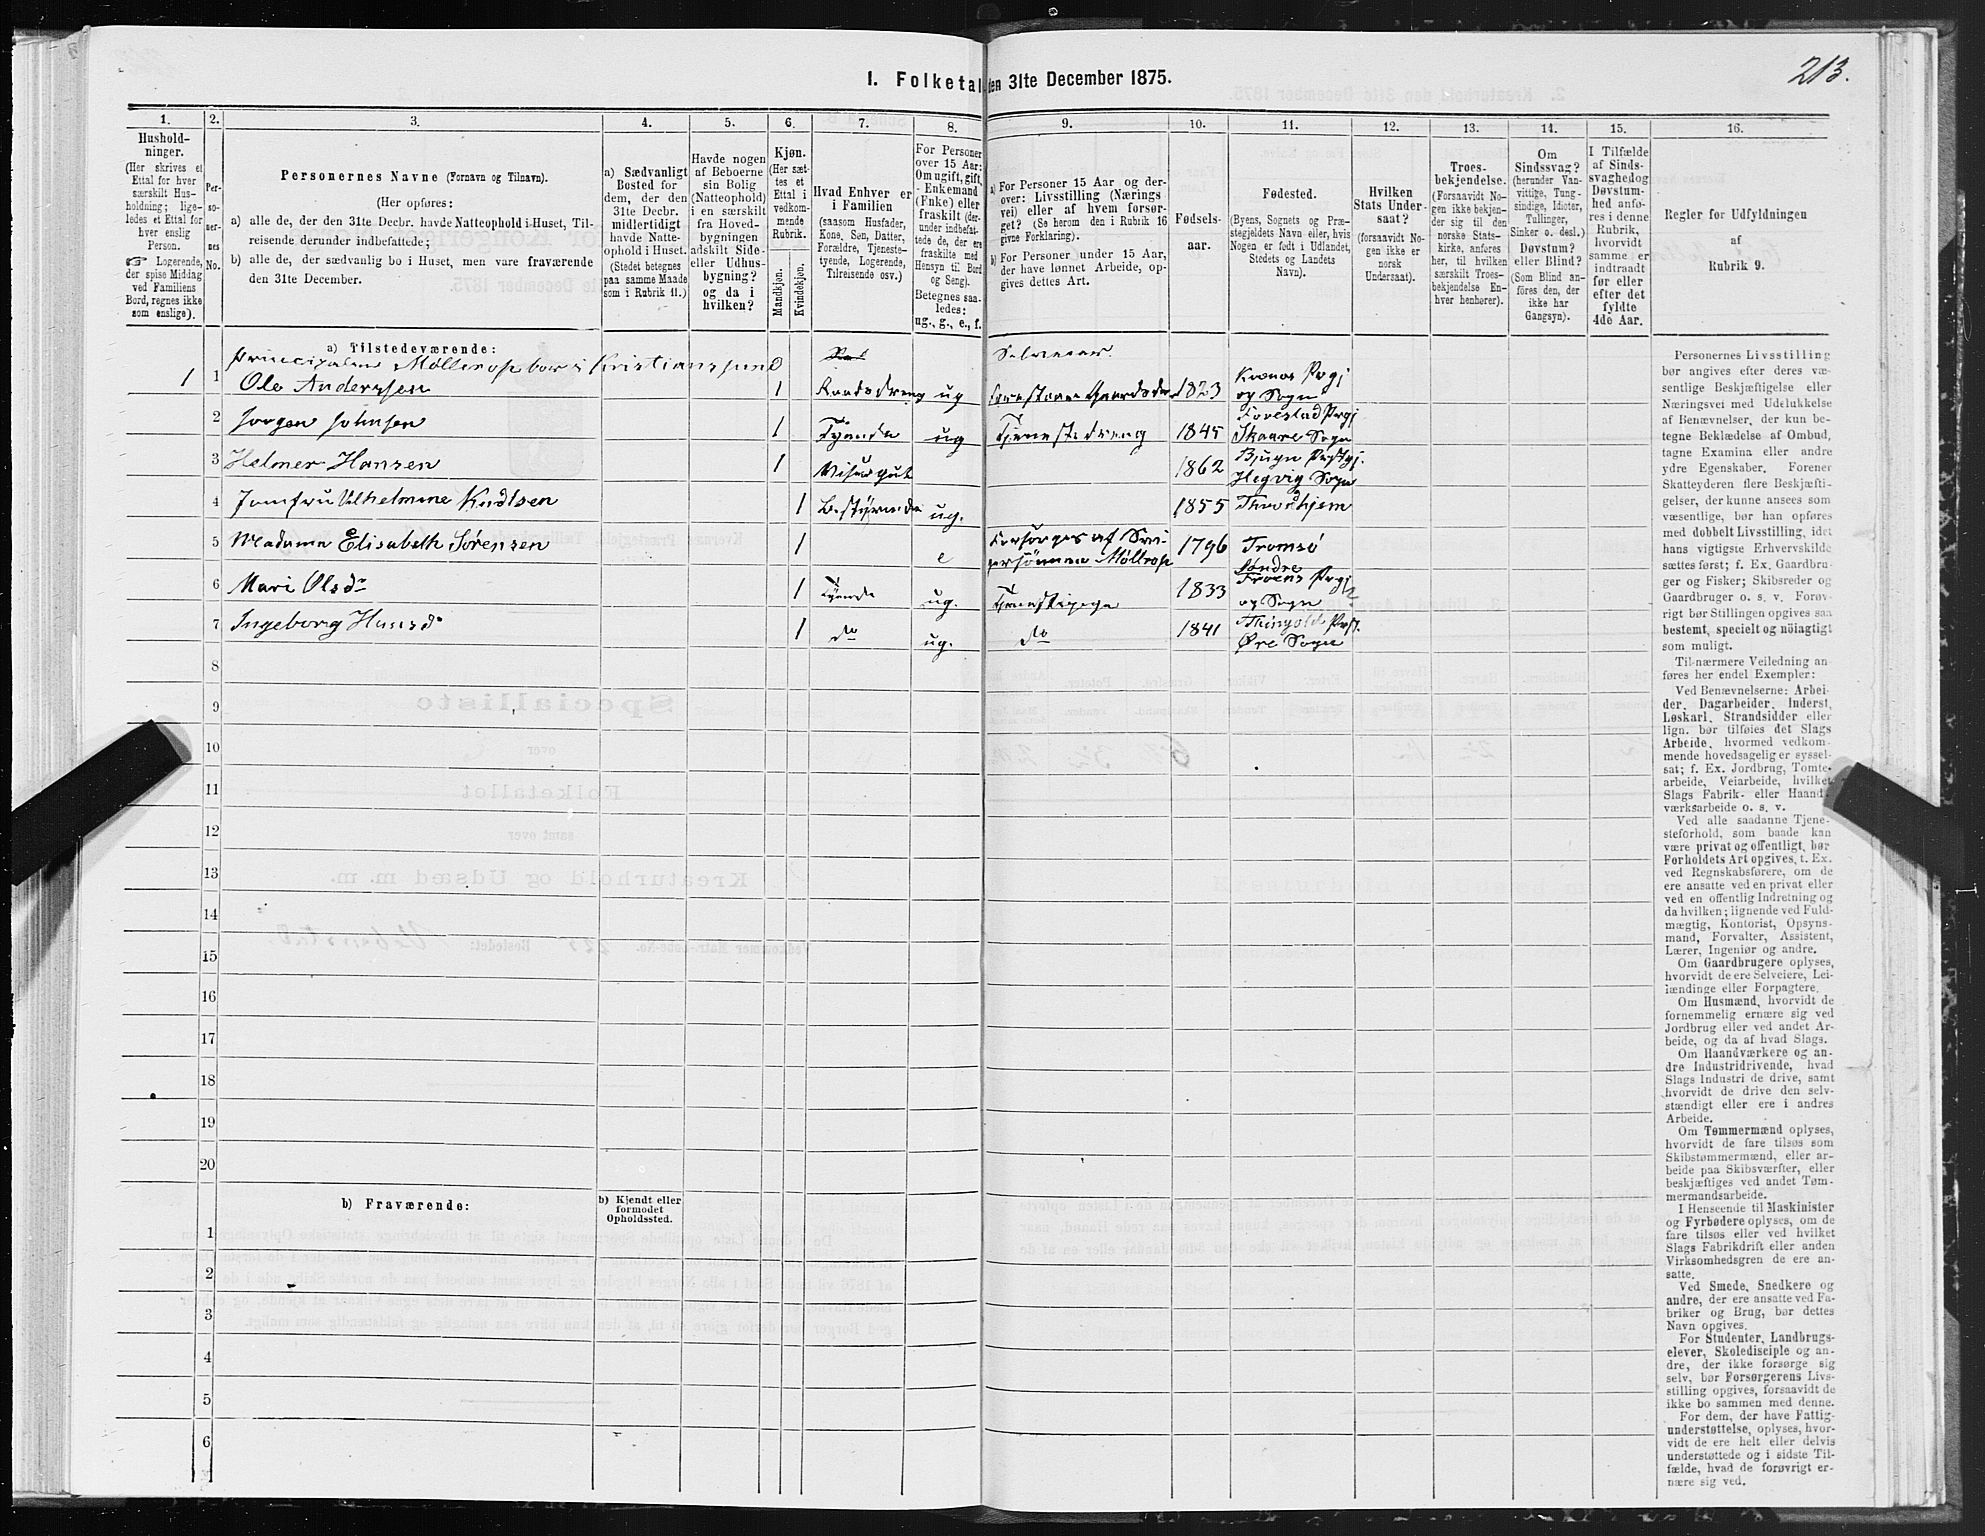 213.
I. Folketal den 31te December 1875.
1.
Hushold-
ninger.
(Her skrives et
Ettal for hver
særskilt Hus-
holdning; lige-
ledes et Ettal for
hver enslig
Person.
☞ Logerende,
der spise Middag
ved Familiens
Bord, regnes ikke
som enslige).
2.
Per-
so-
ner-
nes
No.
3.
Personernes Navne (Fornavn og Tilnavn).
(Her opføres:
a) alle de, der den 31te Decbr. havde Natteophold i Huset, Til-
reisende derunder indbefattede;
b) alle de, der sædvanlig bo i Huset, men vare fraværende
den 31te December.
4.
a) Sædvanligt
Bosted for
dem, der den
31te Decbr.
midlertidigt
havde Natte-
ophold i Huset.
(Stedet betegnes
paa samme Maade
som i Rubrik 11.)
5.
Havde nogen
af Beboerne
sin Bolig
(Natteophold)
i en særskilt
fra Hoved-
bygningen
adskilt Side-
eller Udhus-
bygning?
og da i
hvilken?
6.
Kjøn.
(Her sæt-
tes et
Ettal i
vedkom-
mende
Rubrik.
Mandkjøn.
Kvindekjøn.
7.
Hvad Enhver er
i Familien
(saasom Husfader,
Kone, Søn, Datter,
Forældre, Tjeneste-
tyende, Logerende,
Tilreisende osv.)
8.
For Personer
over 15 Aar:
Om ugift, gift,
Enkemand
(Enke) eller
fraskilt (der-
under indbefat-
tede de, der ere
fraskilte med
Hensyn til Bord
og Seng).
Betegnes saa-
ledes:
ug., g., e., f.
9.
a) For Personer 15 Aar og der-
over: Livsstilling (Nærings
vei) eller af hvem forsør-
get? (Se herom den i Rubrik 16
givne Forklaring).
b) For Personer under 15 Aar,
der have lønnet Arbeide, op-
gives dettes Art.
10.
Fødsels-
aar.
11.
Fødested.
(Byens, Sognets og Præ-
stegjeldets Navn eller, hvis
Nogen er født i Udlandet,
Stedets og Landets
Navn).
12.
Hvilken
Stats Under-
saat?
(forsaavidt No-
gen ikke er
norsk
Undersaat).
13.
Troes-
bekjendelse.
(Forsaavidt No-
gen ikke bekjen-
der sig til den
norske Stats-
kirke, anføres
her, til hvilken
særskilt Troes-
bekjendelse En-
hver henhører).
14.
Om
Sindssvag?
(herunder Van-
vittige, Tung-
sindige, Idioter,
Tullinger,
Sinker o. desl.)
Døvstum?
eller Blind?
(Som Blind an-
føres den, der
ikke har
Gangsyn).
15.
I Tilfælde
af Sinds-
svaghed og
Døvstum-
hed anfø-
res i denne
Rubrik,
hvorvidt
samme er
indtraadt
før eller
efter det
fyldte
4de Aar.
16.
Regler for Udfyldningen
af
Rubrik 9.
a) Tilstedeværende:
Principalen Møllerop bor i Kristianssund Selveier.
1 1 Ole Anderssen 1 Gaardsdreng ug 1823 Prgj
og Sogn
2 Jørgen Johnsen 1 Tyende ug Tjenestedreng 1845 Prgj
Skaare Sogn
3 Helmer Hansen 1 Visergut 1862 Bjugn Prstgj.
Hegvig Sogn
4 Jomfru Vilhelmine Knudtsen 1 Bestyrende ug. 1855 Throndhjem
5 Madame Elisabeth Sørensen 1 e Forsørges af Svi-
gersønnen Møllrop 1796 Tromsø
6 Mari Olsdr 1 Tyende ug. Tjenestepige 1833 Søndre
Froens Prgj
og Sogn
7 Ingeborg Hansd 1 do ug. do 1841 Thingvold Prst.
Øre Sogn
8
9
10
11
12
13
14
15
16
17
18
19
20
b) Fraværende:
b) Kjendt eller
formodet
Opholdssted.
1
2
3
4
5
6
Personernes Livsstilling
bør angives efter deres væ-
sentlige Beskjæftigelse eller
Næringsvei med Udelukkelse
af Benævnelser, der kun be-
tegne Beklædelse af Ombud,
tagne Examina eller andre
ydre Egenskaber. Forener
Skatteyderen flere Beskjæfti-
gelser, der kunne ansees som
væsentlige, bør han opføres
med dobbelt Livsstilling, idet
hans vigtigste Erhvervskilde
sættes først; f. Ex. Gaardbru-
ger og Fisker; Skibsreder og
Gaardbruger o. s. v. Forøv-
rigt bør Stillingen opgives saa
bestemt, specielt og nöiagtigt
som muligt.
Til nærmere Veiledning an
føres her endel Exempler:
Ved Benævnelserne: Arbei-
der, Dagarbeider, Inderst,
Løskarl, Strandsidder eller
lign. bør tilføies det Slags
Arbeide, hvormed vedkom-
mende hovedsagelig er syssel-
sat; f. Ex. Jordbrug, Tomte-
arbeide, Veiarbeide, hvilket
Slags Fabrik- eller Haand-
værksarbeide o. s. v.
Ved alle saadanne Tjene-
steforhold, som baade kan
være privat og offentligt, bør
Forholdets Art opgives, t. Ex.
ved Regnskabsførere, om de
ere ansatte ved en privat eller
ved en offentlig Indretning og
da hvilken; lignende ved Fuld-
mægtig, Kontorist, Opsyns-
mand, Forvalter, Assistent,
Lærer, Ingeniør og andre.
Om Gaardbrugere oplyses,
hvorvidt de ere Selveiere, Lei-
iændinge eller Forpagtere.
Om Husmænd, hvorvidt de
fornemmelig ernære sig ved
Jordbrug eller ved andet Ar-
beide, og da af hvad Slags.
Om Haandværkere og an-
dre Industridrivende, hvad
Slags Industri de drive, samt
hvorvidt de drive den selv-
stændigt eller ere i andres
Arbeide.
Om Tømmermænd oplyses,
hvorvidt de fare tilsøs som
Skibstømmermænd, eller ar-
beide paa Skibsværfter, eller
beskjæftiges ved andet Tøm-
mermandsarbeide.
I Henseende til Maskinister
og Fyrbødere oplyses, om de
fare tilsøs eller ved hvilket
Slags Fabrikdrift eller anden
Virksomhedsgren de ere an-
satte.
Ved Smede, Snedkere og
andre, der ere ansatte ved Fa-
briker og Brug, bør dettes
Navn opgives.
For Studenter, Landbrugs-
elever, Skoledisciple og an-
dre, der ikke forsørge sig
selv, bør Forsørgerens Livs-
stilling opgives, forsaavidt de
ikke bo sammen med denne.
For dem, der have Fattig-
understøttelse, oplyses, hvor-
vidt de ere helt eller delvis
understøttede og i sidste Til-
fælde, hvad de forøvrigt er-
nære sig ved.